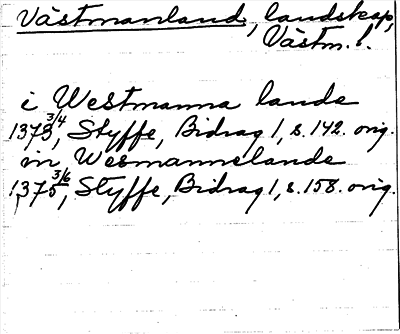 Västmanland, landskap,
Västm. l.
i Westmanna lande
1373 3/4, Styffe, Bidrag 1, s. 142. orig.
in Wesmannelande
1375 3/6, Styffe, Bidrag 1, s. 158. orig.